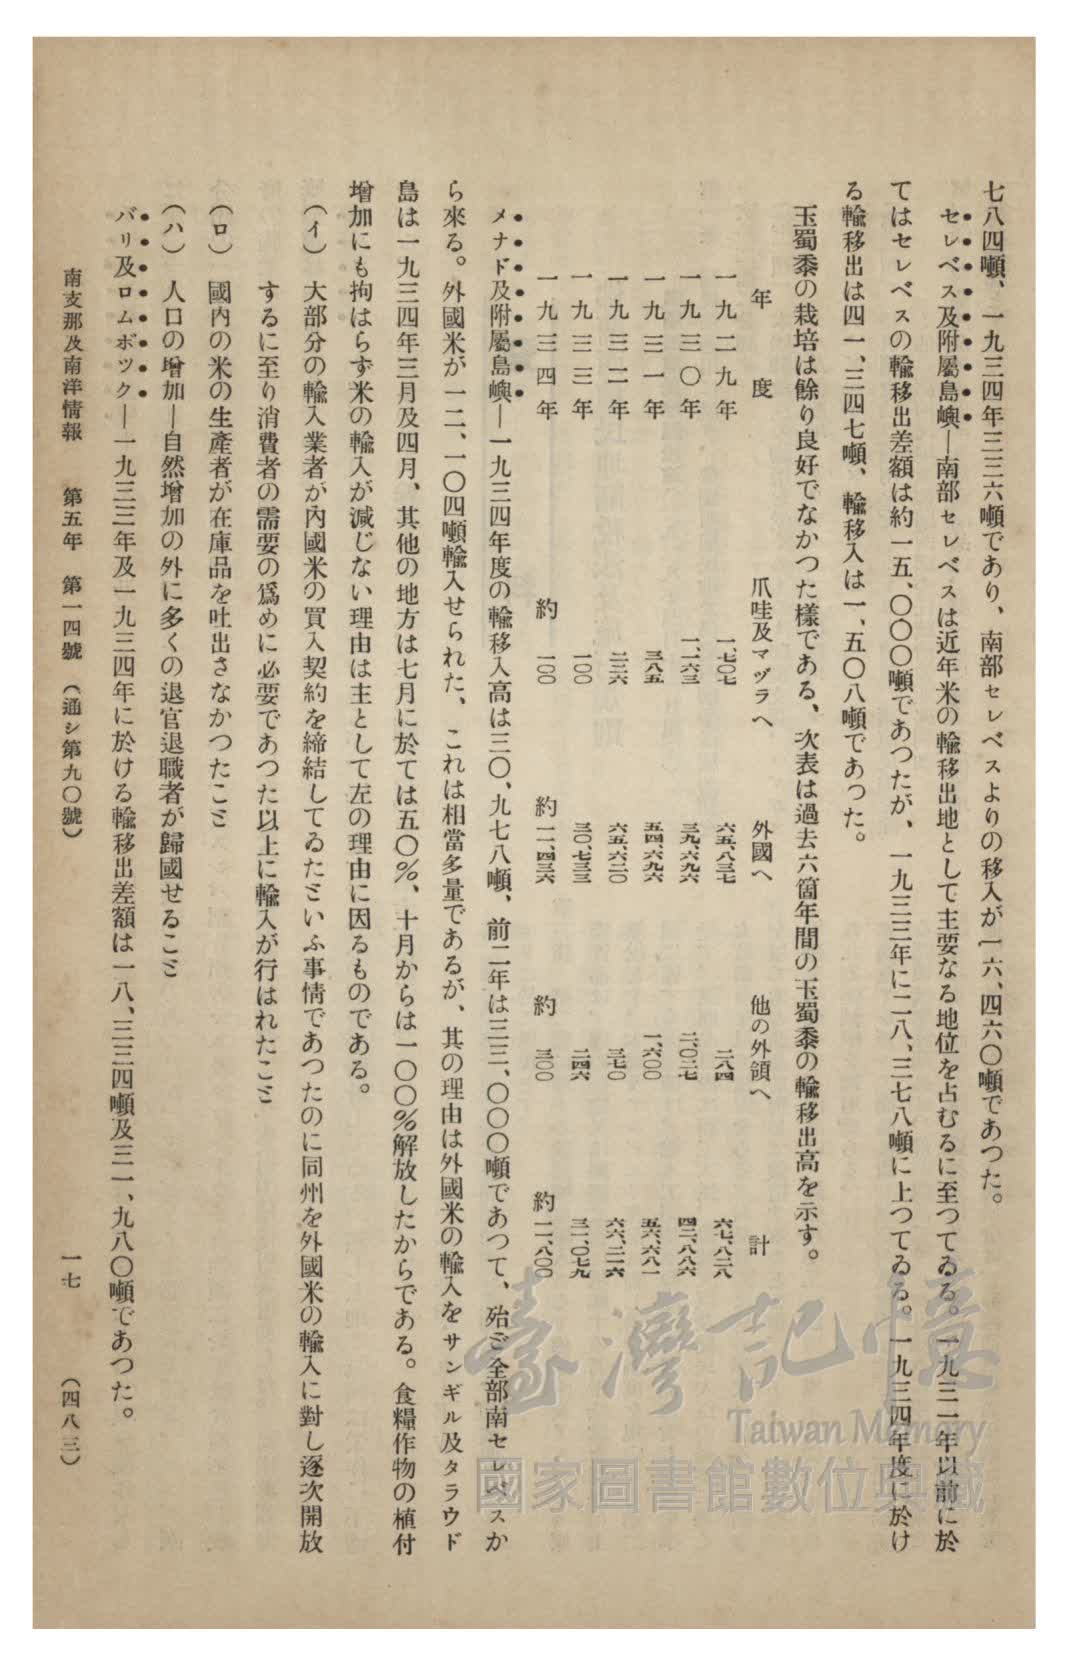 七八四噸、一九三四年三三六噸であり、南部セレベスよりの移入が一六、四六〇噸であつた。
セレベス及附屬島嶼―南部セレベスは近年米の輸移出地として主要なる地位を占むるに至つてゐる。一九三一年以前に於
てはセレベスの輸移出差額は約一五、〇〇〇噸であつたが、一九三三年に二八、三七八噸に上つてゐる。一九三四年度に於け
る輸移出は四一、三四七噸、輸移入は一、五〇八噸であつた。
玉蜀黍の栽培は餘り良好でなかつた樣である、次表は過去六箇年間の玉蜀黍の輸移出高を示す。
年度 爪哇及マヅラへ 外國へ 他の外領へ 計
一九二九年 一、七〇七 六五、八三七 二八四 六七、八二八
一九三〇年 一、一六三 三九、六九六 二、〇二七 四二、八八六
一九三一年 三八五 五四、六九六 一、六〇〇 五六、六八一
一九三二年 二二六 六五、六二〇 三七〇 六六、二一六
一九三三年 一〇〇 三〇、七三三 二四六 三一、〇七九
一九三四年 約 一〇〇 約 一一、四三六 約 三〇〇 約 一一、八〇〇
メナド及附屬島嶼―一九三四年度の輸移入高は三〇、九七八噸、前二年は三三、〇〇〇噸であつて、殆ど全部南セレベスか
ら來る。外國米が一二、一〇四噸輸入せられた、これは相當多量であるが、其の理由は外國米の輸入をサンギル及タラウド
島は一九三四年三月及四月、其他の地方は七月に於ては五〇％、十月からは一〇〇％解放したからである。食糧作物の植付
增加にも拘はらず米の輸入が減じない理由は主として左の理由に因るものである。
（イ） 大部分の輸入業者が內國米の買入契約を締結してゐたといふ事情であつたのに同州を外國米の輸入に對し逐次開放
するに至り消費者の需要の爲めに必要であつた以上に輸入が行はれたこと
（ロ） 國內の米の生產者が在庫品を吐出さなかつたこと
（ハ） 人口の增加―自然增加の外に多くの退官退職者が歸國せること
バリ及ロムボツク―一九三三年及一九三四年に於ける輸移出差額は一八、三三四噸及三一、九八〇噸であつた。
南支那及南洋情報 第五年 第一四號 （通シ第九〇號） 一七 （四八三）
臺灣記憶
Taiwan Memory
國家圖書館數位典藏